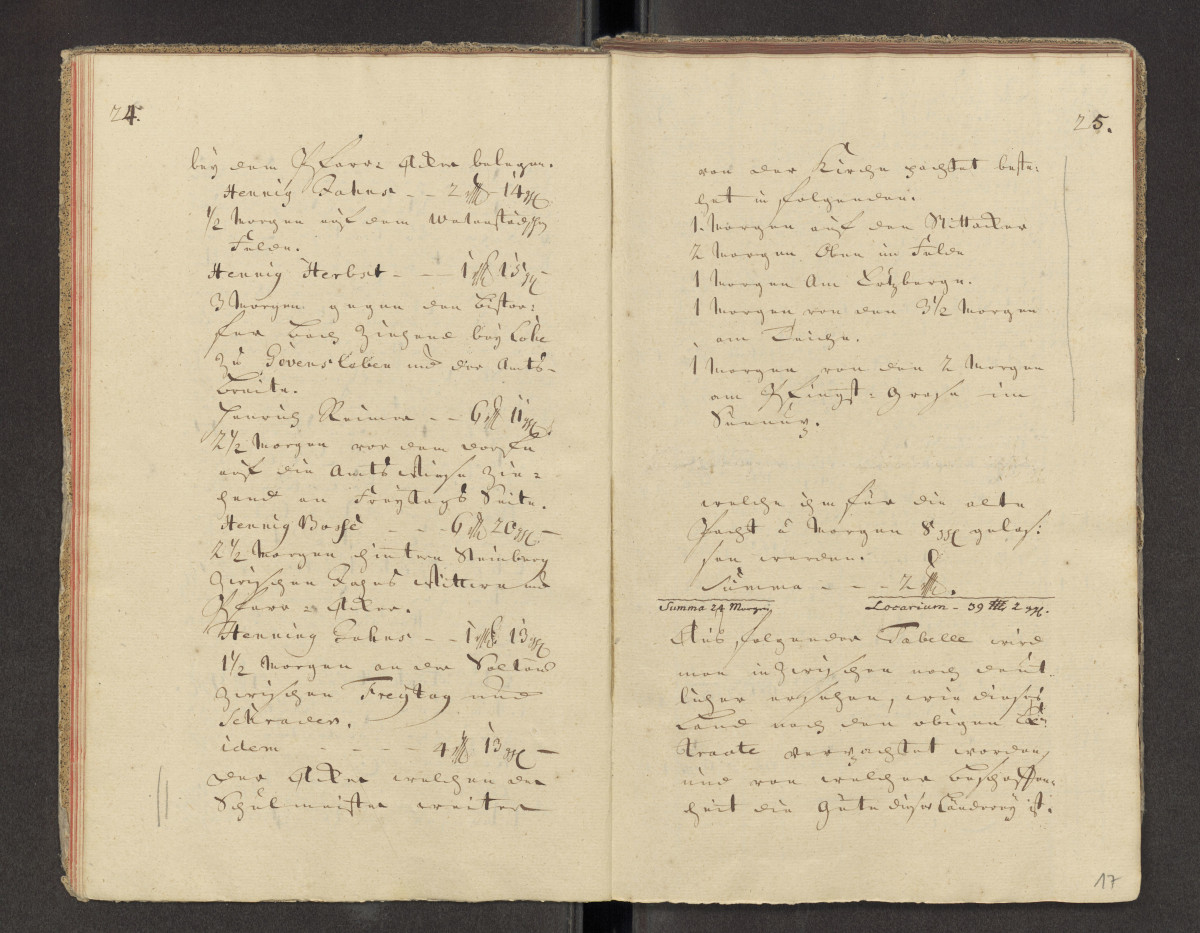 24.
bey dem Pfarr-Acker belegen.
Hennig Jahns - - 2 14
1/2 Morgen auf dem Watenstädschen
Felde.
Hennig Herbst - - 1 15
3 Morgen gegen den
fer Bach ziehend bey Lohe
zu Gevensleben und der Amts-
Breite.
Henrich Reimer - - 6 11
2 1/2 Morgen vor dem Dorffe
auf die Amts Wiese zie-
hend an Freytags Seite.
Hennig Bosse - - - 6 20 -
2 1/2 Morgen hintern Steinberg
zwischen Jahns Wittwe und
Pfarr-Acker.
Henning Jahns - - 1 13
1 1/2 Morgen an der
zwischen Freytag und
Schrader.
idem - - - - 4 13 -
Der Acker welchen der
Schulmeister weiter
25.
von der Kirche pachtet beste-
het in folgenden.
1 Morgen auf den
2 Morgen Oben im Felde
1 Morgen Am
1 Morgen von den 3 1/2 Morgen
am Teiche.
1 Morgen von den 2 Morgen
am Pfingst-Grase im
welche ihm für die alte
Pacht à Morgen 8 gelas-
sen werden.
Summa - - - 2.
Summa 24 Morgen Locarium - 39 2
Aus folgender Tabelle wird
man inzwischen noch deut-
licher ersehen, wie dieses
Land nach den obigen
tracte verpachtet worden,
und von welcher Beschaffen-
heit die Güte dieser Länderey ist.
17